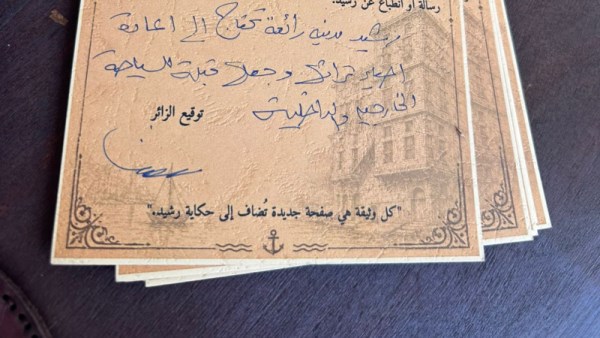 رسالة أو انطباع عن رشيد:
رشيد مدينة رائعة تحتاج إلى اعادة
احياء تراثها وجعلها قبلة للسياحة
الخارجية والداخلية
توقيع الزائر
"كل وثيقة هي صفحة جديدة تُضاف إلى حكاية رشيد."